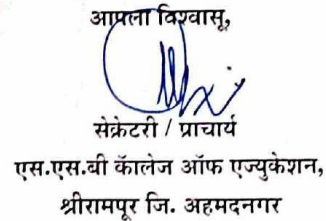 आपला विश्वासू,
सेक्रेटरी / प्राचार्य
एस.एस.बी कॅालेज ऑफ एज्युकेशन,
श्रीरामपूर जि. अहमदनगर